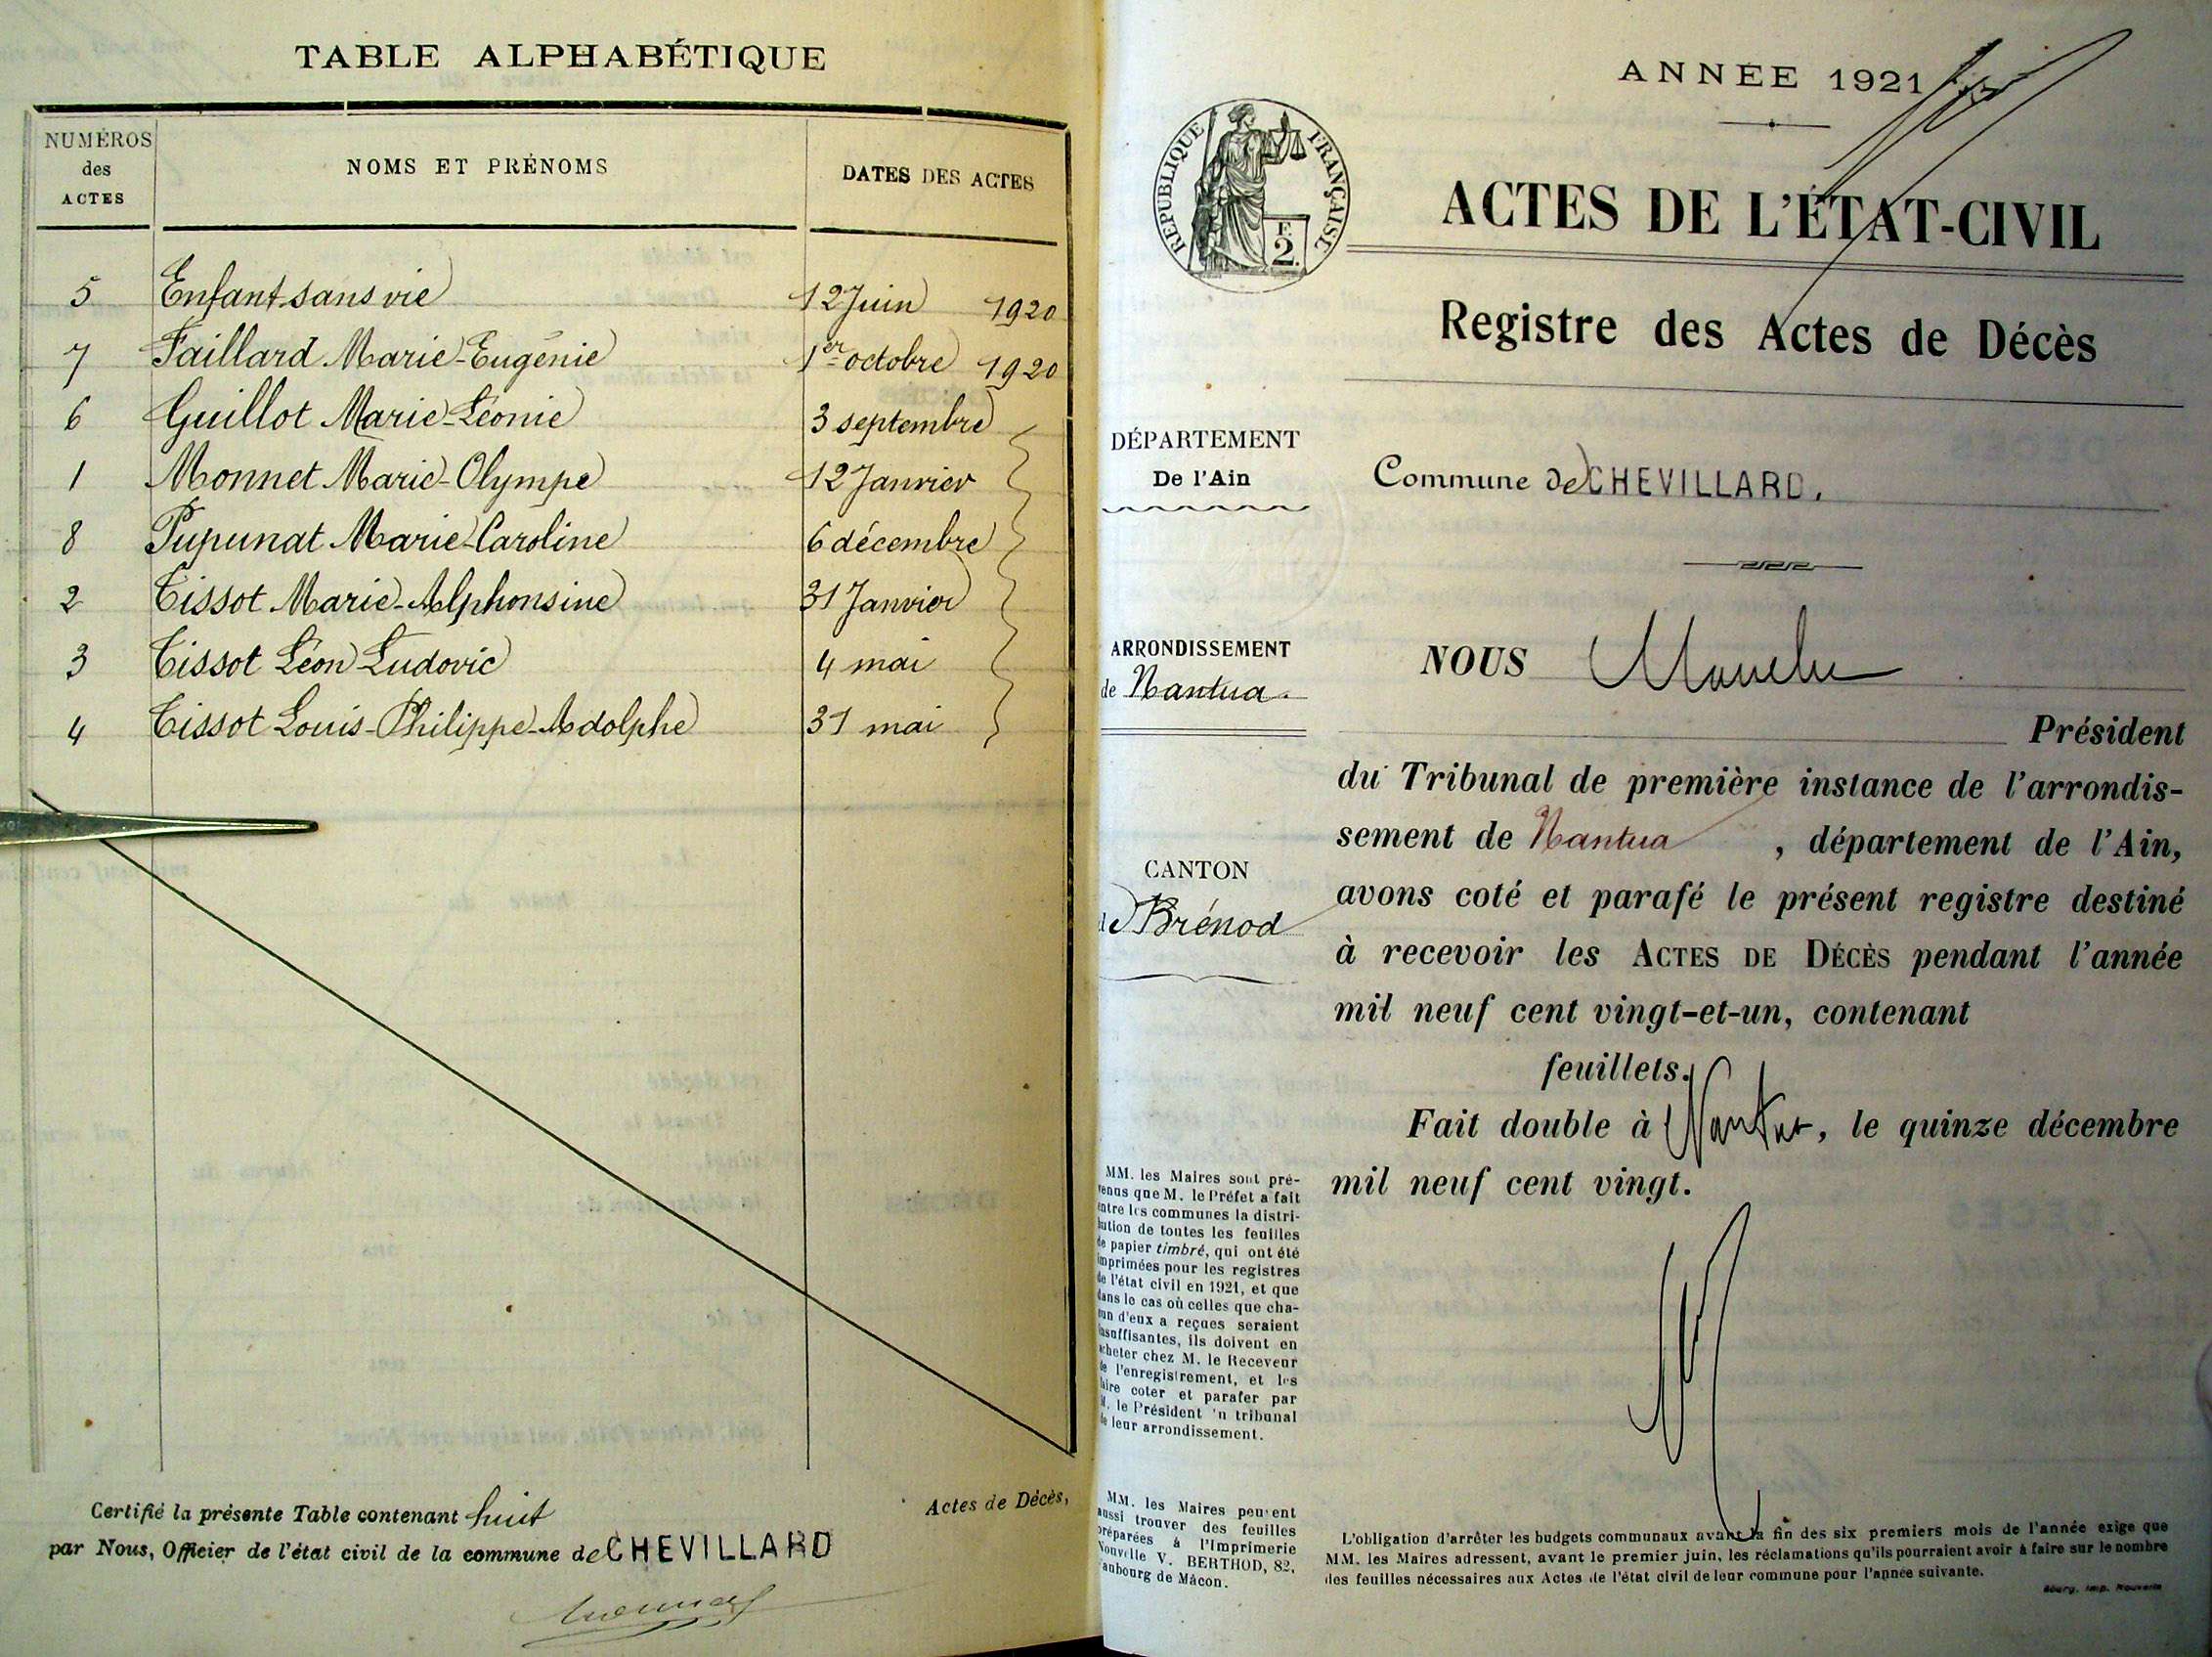 TABLE ALPHABÉTIQUE
NUMÉROS des ACTES
NOMS ET PRÉNOMS
DATES DES ACTES
5 Enfant sans vie 12 Juin 1920
7 Faillard Marie-Eugénie 1er octobre 1920
6 Guillot Marie-Léonie 3 septembre
1 Monnet Marie-Olympe 12 Janvier
8 Pupunat Marie-Caroline 6 décembre
2 Tissot Marie-Alphonsine 31 Janvier
3 Tissot Léon Ludovic 4 mai
4 Tissot Louis-Philippe-Adolphe 31 mai
Certifié la présente Table contenant huit Actes de Décès,
par Nous, Officier de l'état civil de la commune de CHEVILLARD
ANNÉE 1921
RÉPUBLIQUE FRANÇAISE
E.
2.
ACTES DE L'ÉTAT-CIVIL
Registre des Actes de Décès
DÉPARTEMENT
De l'Ain
Commune de CHEVILLARD.
ARRONDISSEMENT
de Nantua.
CANTON
de Brénod
NOUS
Président
du Tribunal de première instance de l'arrondis-
sement de Nantua, département de l'Ain,
avons coté et parafé le présent registre destiné
à recevoir les ACTES DE DÉCÈS pendant l'année
mil neuf cent vingt-et-un, contenant
feuillets.
Fait double à Nantua, le quinze décembre
mil neuf cent vingt.
MM. les Maires sont pré-
venus que M. le Préfet a fait
entre les communes la distri-
bution de toutes les feuilles
de papier timbré, qui ont été
imprimées pour les registres
de l'état civil en 1921, et que
dans le cas où celles que cha-
cun d'eux a reçues seraient
insuffisantes, ils doivent en
acheter chez M. le Receveur
de l'enregistrement, et les
faire coter et parafer par
M. le Président 'n tribunal
de leur arrondissement.
MM. les Maires peuvent
aussi trouver des feuilles
préparées à l'Imprimerie
Nouvelle V. BERTHOD, 82,
faubourg de Mâcon.
L'obligation d'arrêter les budgets communaux avant la fin des six premiers mois de l'année exige que
MM. les Maires adressent, avant le premier juin, les réclamations qu'ils pourraient avoir à faire sur le nombre
des feuilles nécessaires aux Actes de l'état civil de leur commune pour l'année suivante.
Bourg, Imp. Nouvelle